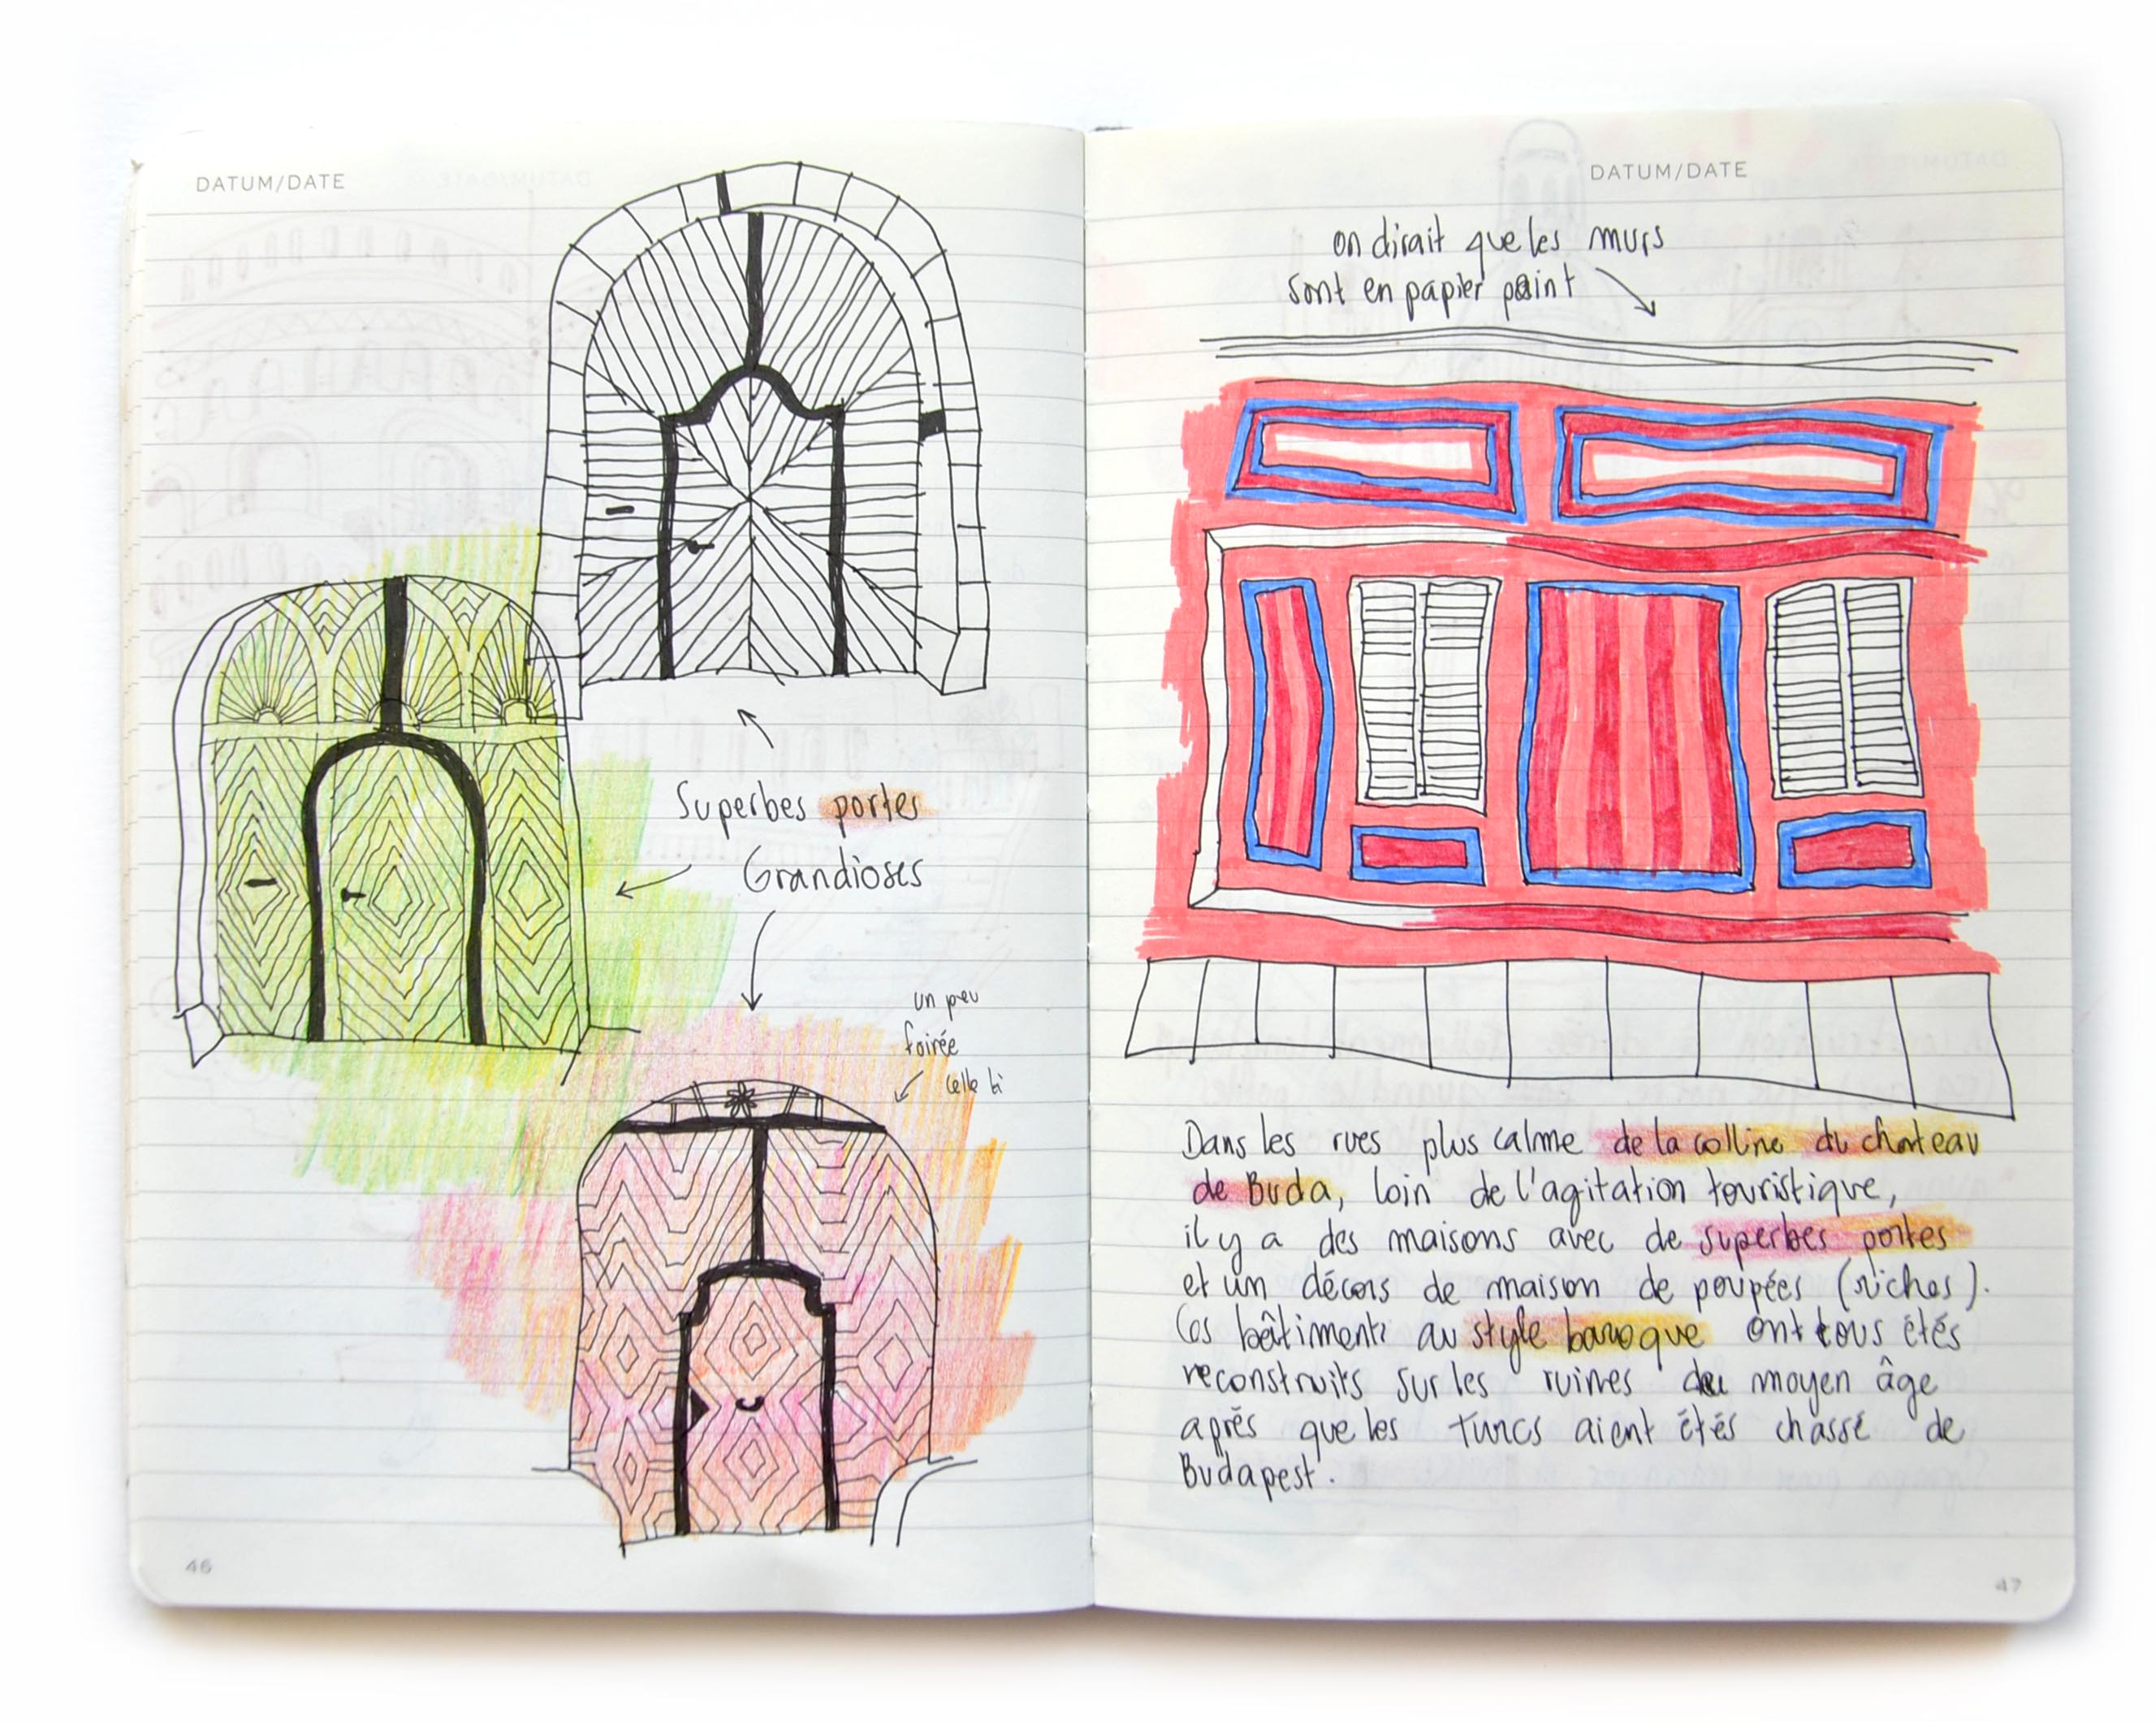 DATUM/DATE
Superbes portes
Grandioses
un peu
foirée
celle ci
46
DATUM/DATE
on dirait que les murs
sont en papier paint
Dans les rues plus calme de la colline du chateau
de Buda, loin de l'agitation touristique,
il y a des maisons avec de superbes portes
et un décors de maison de poupées (riches).
Ces bâtiments au style baroque ont tous étés
reconstruits sur les ruines du moyen âge
après que les Turcs aient étés chassé de
Budapest.
47